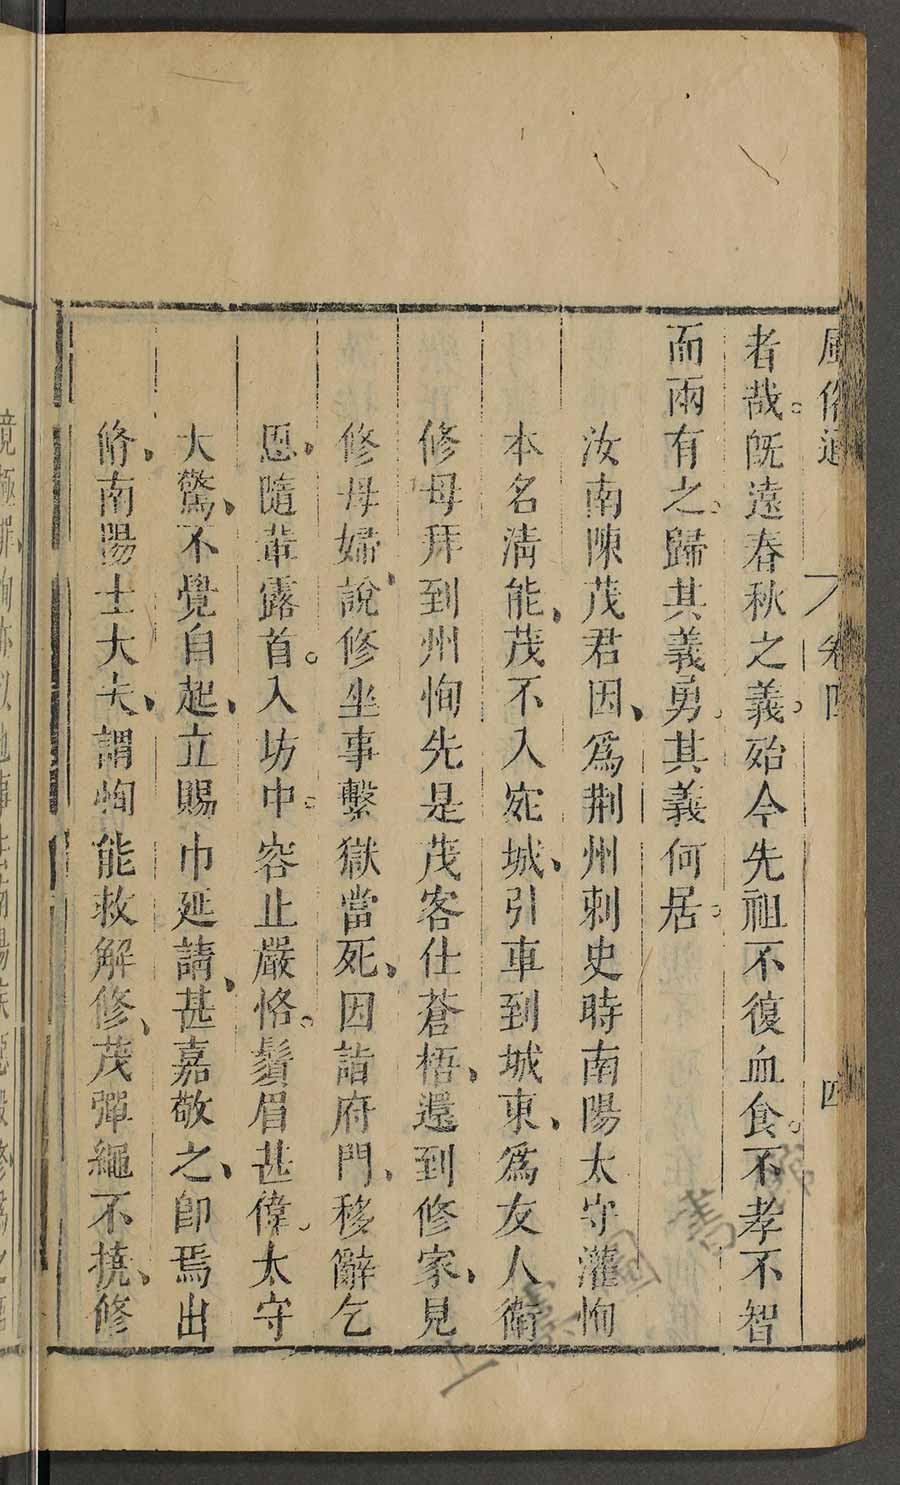 風俗通
卷四
四
者哉既遠春秋之義殆令先祖不復血食不孝不智
而兩有之歸其義勇其義何居
汝南陳茂君因爲荆州刺史時南陽太守灌恂
本名清能茂不入宛城引車到城東爲友人衛
修母拜到州恂先是茂客仕蒼梧還到修家見
修母婦說修坐事繫獄當死因詣府門移辭乞
恩隨輩露首入坊中容止嚴恪鬚眉甚偉太守
大驚不覺自起立賜巾延請甚嘉敬之即焉出
脩南陽士大夫謂恂能救解修茂彈繩不撓修